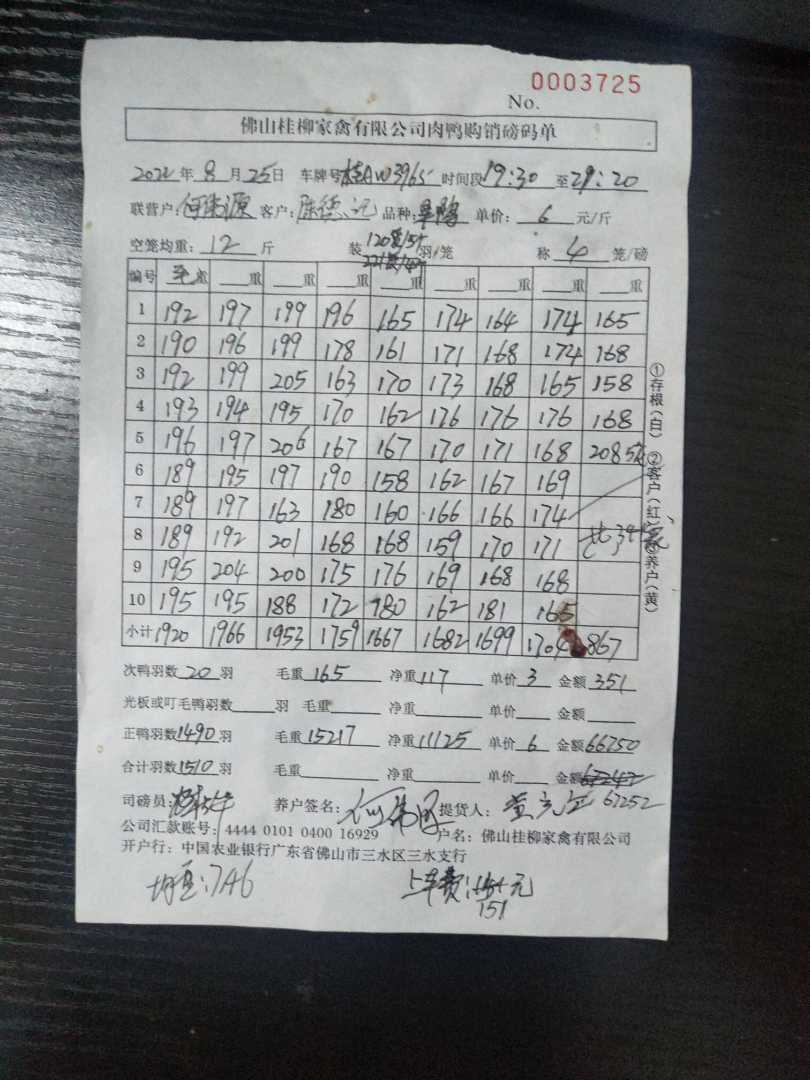 0003725
No.
佛山桂柳家禽有限公司肉鸭购销磅码单
2022年8月25日 车牌号桂AW3965 时间段19:30至21:20
联营户: 客户: 品种: 单价:6元/斤
空笼均重:12斤 装 羽/笼 称4笼/磅
编号 毛重 重 重 重 重 重 重 重 重
1 192 197 199 196 165 174 164 174 165
2 190 196 199 178 161 171 168 174 168
3 192 199 205 163 170 173 168 165 158
4 193 194 195 170 162 176 176 176 168
5 196 197 206 167 167 170 171 168 208
6 189 195 197 190 158 162 167 169
7 189 197 163 180 160 166 166 174
8 189 192 201 168 168 159 170 171
9 195 204 200 175 176 169 168 168
10 195 195 188 172 180 162 181 165
小计 1920 1966 1953 1759 1667 1682 1699 1704 867
①存根(白) ②客户(红) ③养户(黄)
次鸭羽数20羽 毛重165 净重117 单价3 金额351
光板或叮毛鸭羽数 羽 毛重 净重 单价 金额
正鸭羽数1490羽 毛重15217 净重11125 单价6 金额66750
合计羽数1510羽 毛重 净重 单价 金额
司磅员: 养户签名: 提货人: 67252
公司汇款账号:4444 0101 0400 16929 户名:佛山桂柳家禽有限公司
开户行:中国农业银行广东省佛山市三水区三水支行
均重:7.46 上车费: 元
151